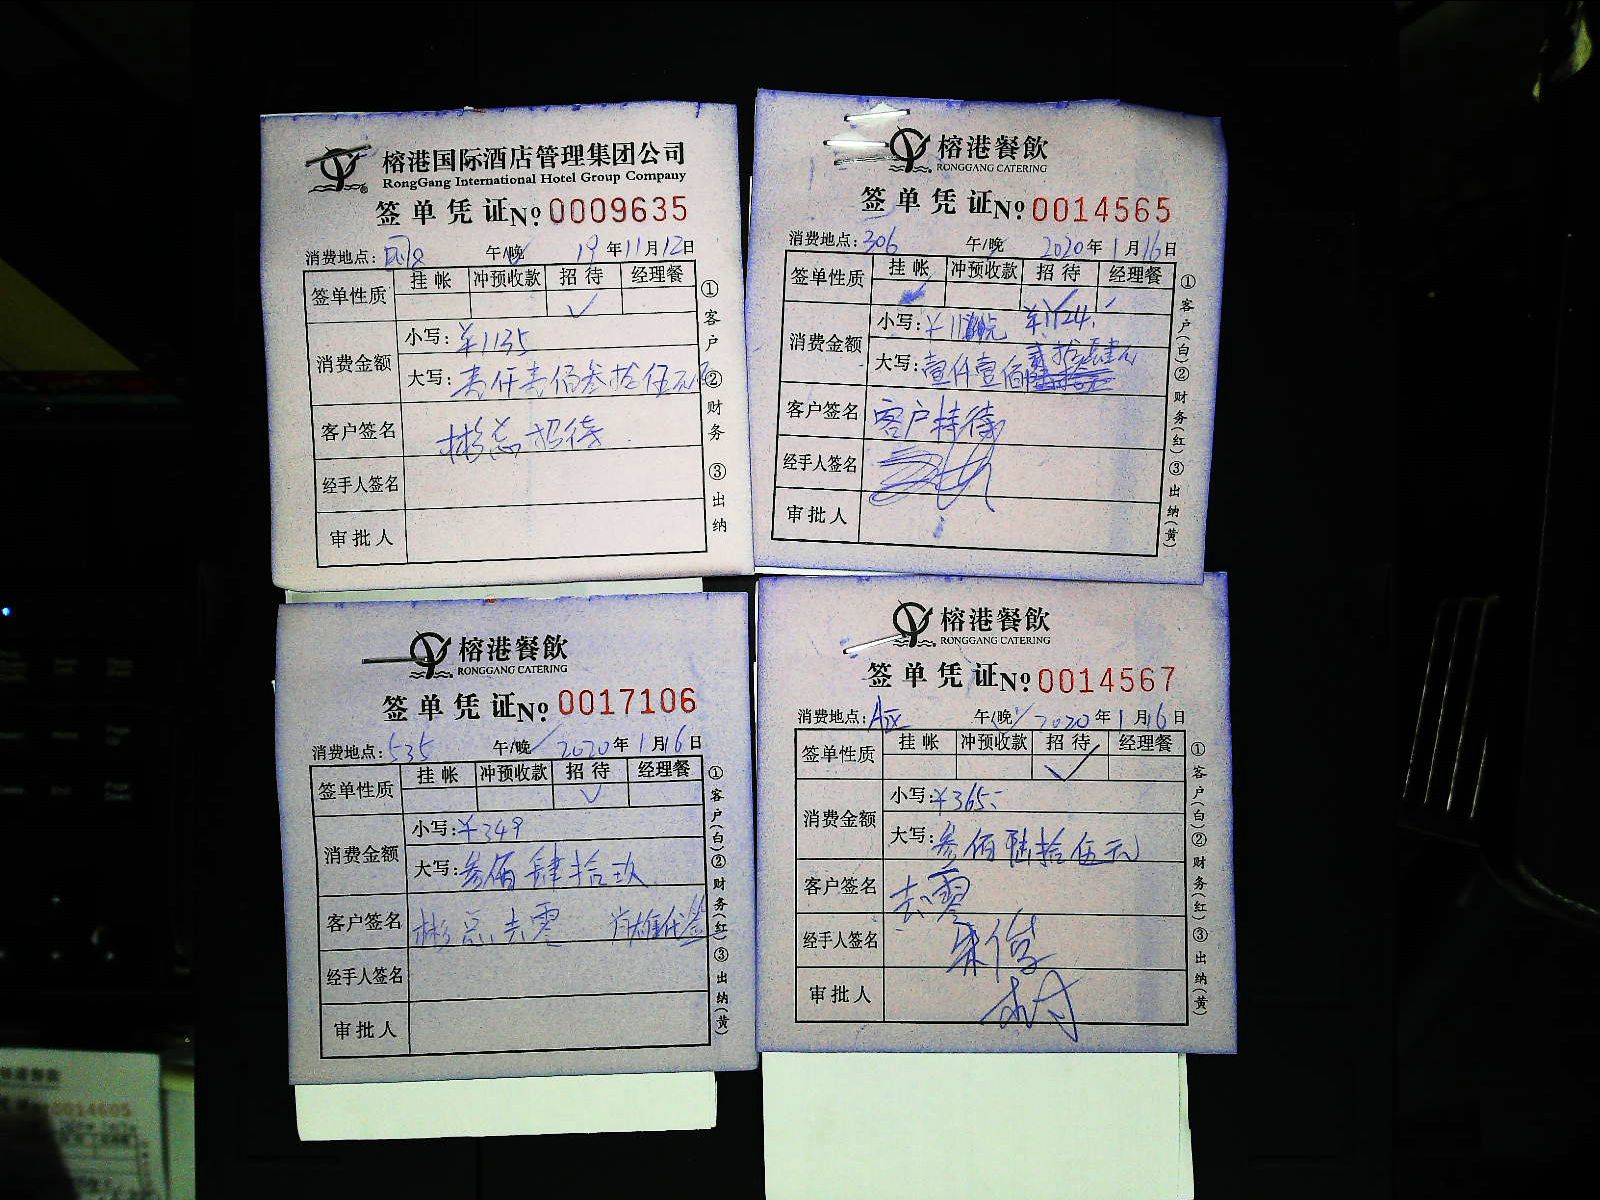 榕港国际酒店管理集团公司
RongGang International Hotel Group Company
签单凭证 № 0009635
消费地点: 午/晚 19年11月12日
签单性质 挂帐 冲预收款 招待 经理餐
✓
消费金额 小写: ¥1135
大写: 壹仟壹佰叁拾伍元
客户签名 彬总招待
经手人签名
审批人
①客户 ②财务 ③出纳
榕港餐飲
RONGGANG CATERING
签单凭证 № 0014565
消费地点: 306 午/晚 2020年1月16日
签单性质 挂帐 冲预收款 招待 经理餐
✓
消费金额 小写: ¥1124.-
大写: 壹仟壹佰贰拾肆元
客户签名 客户持待
经手人签名
审批人
①客户(白)②财务(红)③出纳(黄)
榕港餐飲
RONGGANG CATERING
签单凭证 № 0017106
消费地点: 535 午/晚 2020年1月16日
签单性质 挂帐 冲预收款 招待 经理餐
✓
消费金额 小写: ¥349
大写: 叁佰肆拾玖
客户签名 彬总去零 肖雄代签
经手人签名
审批人
①客户(白)②财务(红)③出纳(黄)
榕港餐飲
RONGGANG CATERING
签单凭证 № 0014567
消费地点: A区 午/晚 2020年1月16日
签单性质 挂帐 冲预收款 招待 经理餐
✓
消费金额 小写: ¥365.-
大写: 叁佰陆拾伍元
客户签名 去零
经手人签名
审批人
①客户(白)②财务(红)③出纳(黄)
0014605